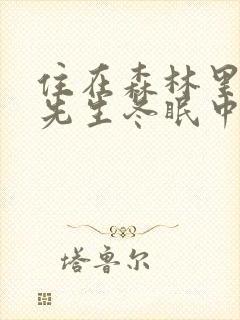 住在森林里
先生冬眠中
塔鲁尔